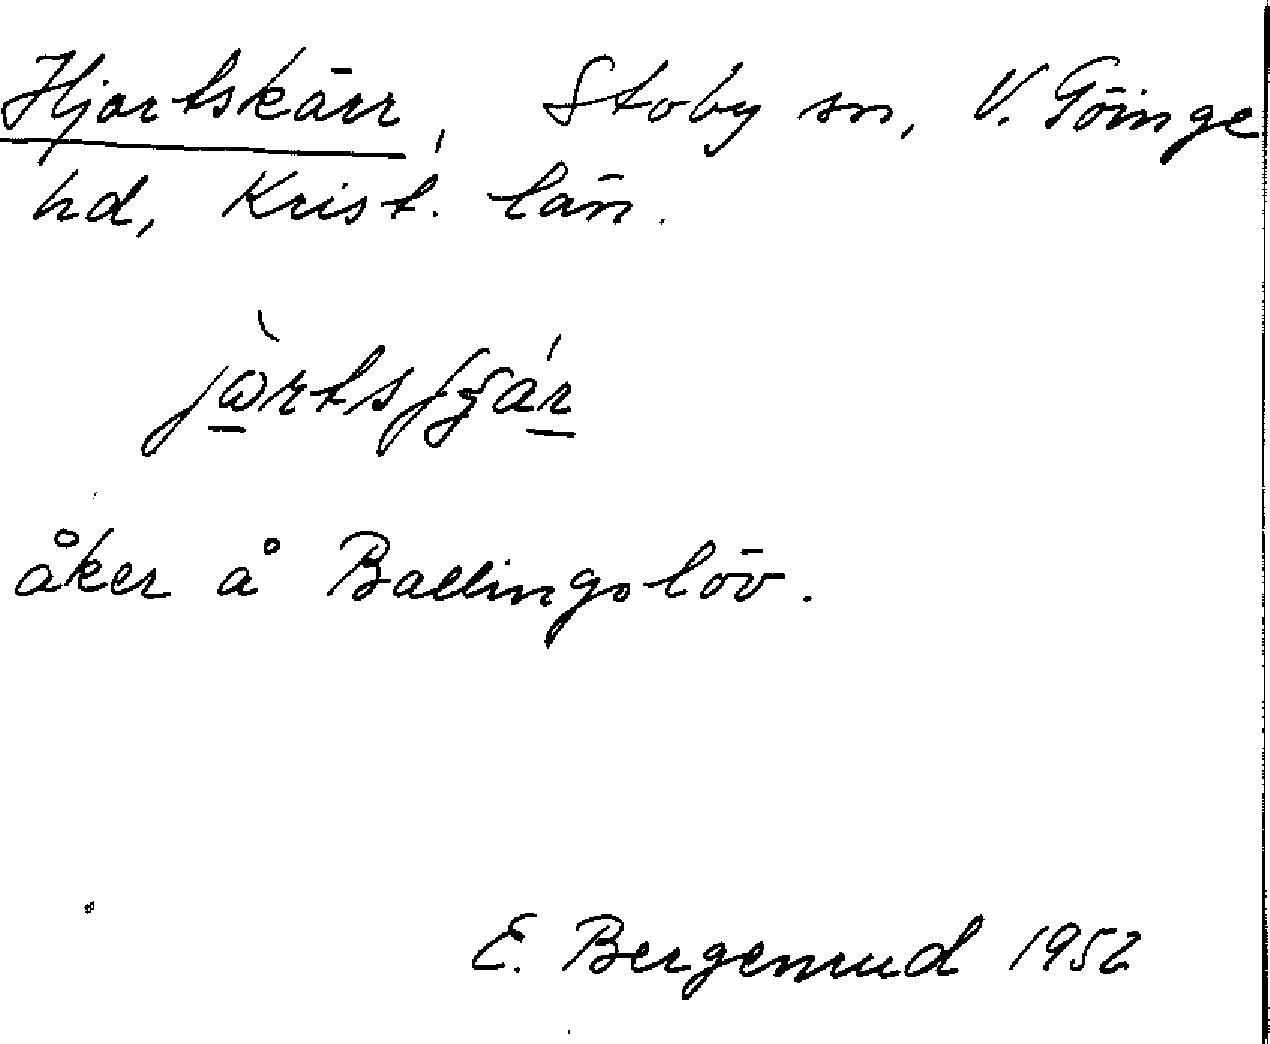 Hjortskärr, Stoby sn, V. Göinge
hd, Krist. län.
åker å Ballingslöv.
E. Bergenrud 1952